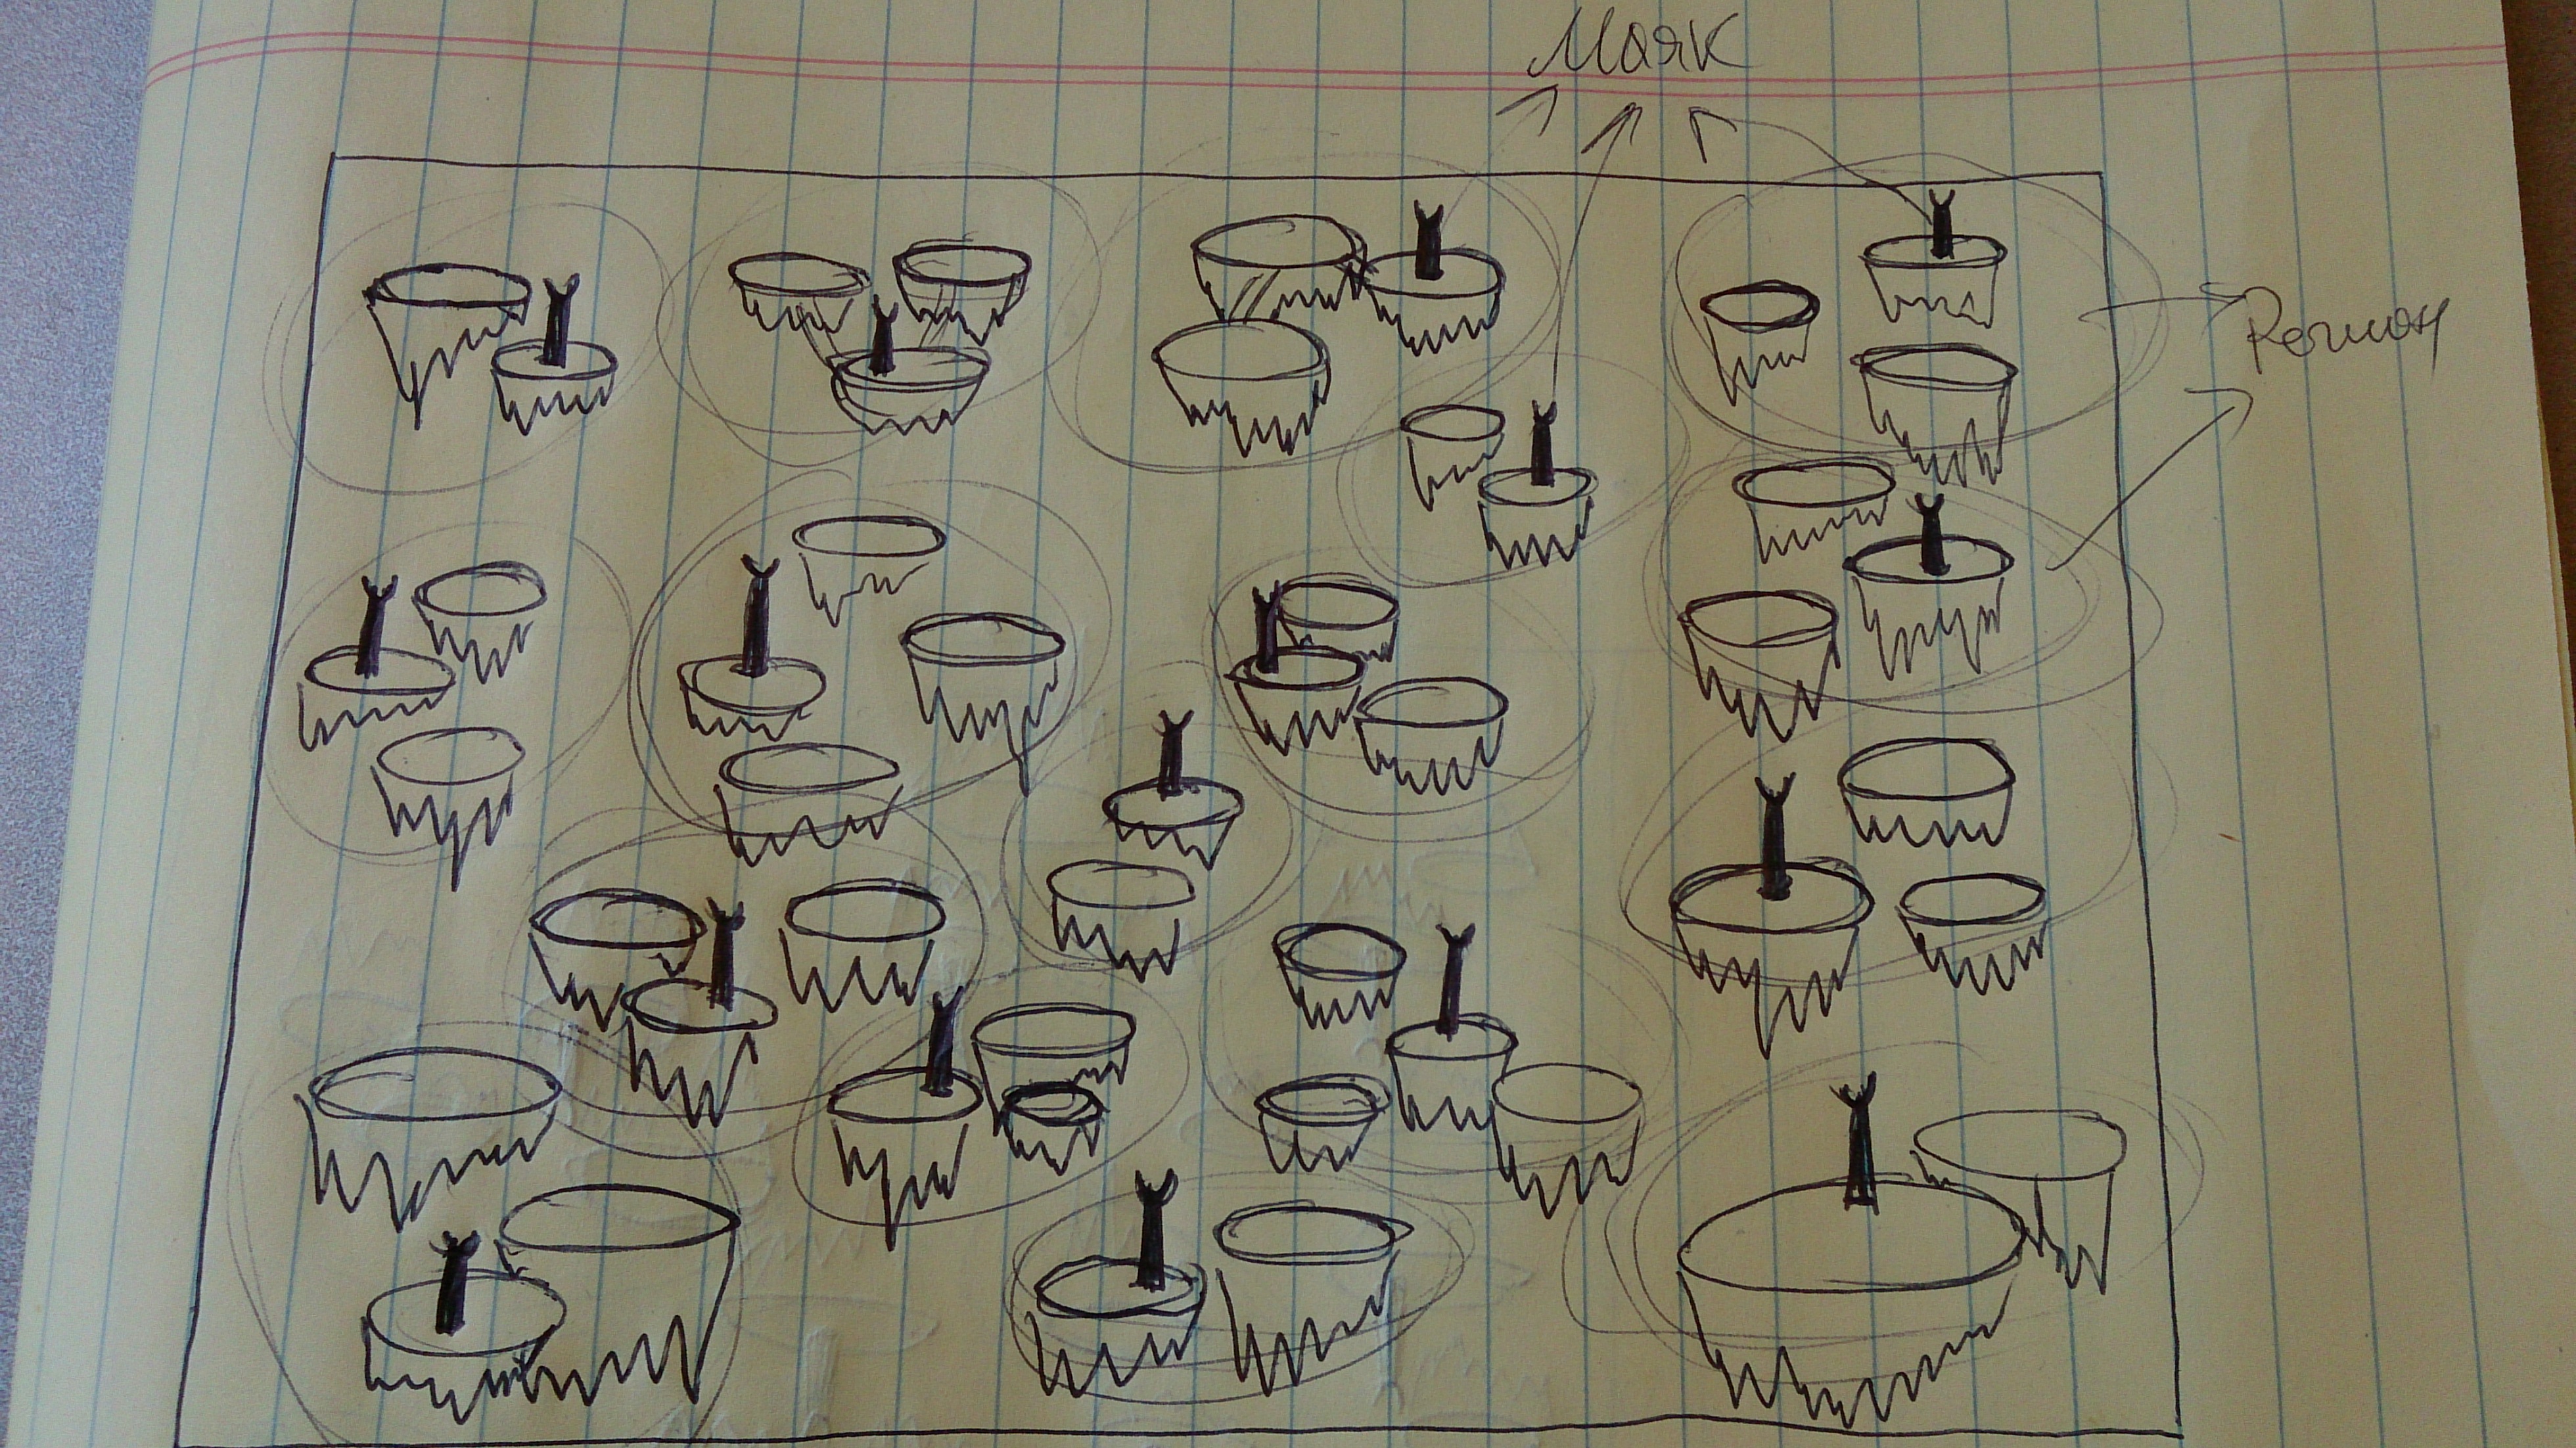 Маяк
Регион